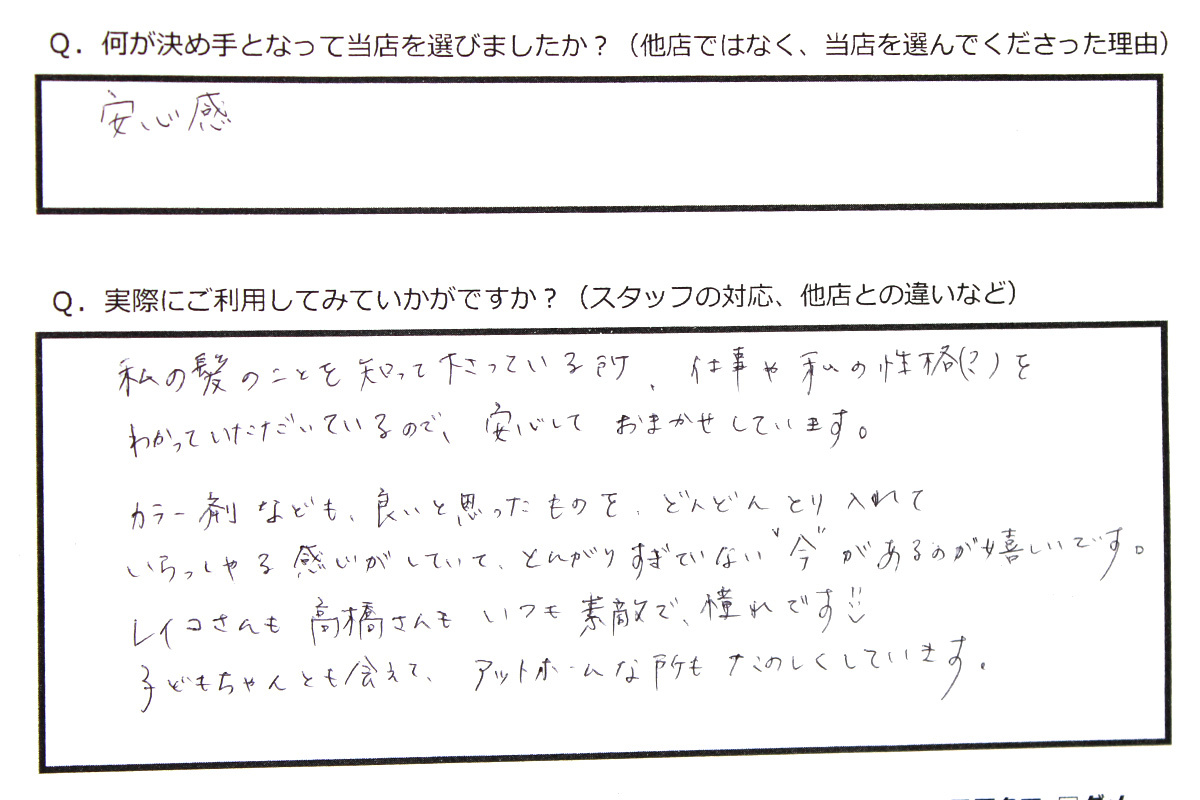 Q．何が決め手となって当店を選びましたか？（他店ではなく、当店を選んでくださった理由）
安心感
Q．実際にご利用してみていかがですか？（スタッフの対応、他店との違いなど）
私の髪のことを知って下さっている所、仕事や私の性格(?)を
わかっていただいているので、安心して おまかせしています。
カラー剤なども、良いと思ったものを、どんどんとり入れて
いらっしゃる感じがしていて、とんがりすぎていない"今"があるのが嬉しいです。
レイコさんも高橋さんもいつも素敵で、憧れです!!
子どもちゃんとも会えて、アットホームな所もたのしくしています。